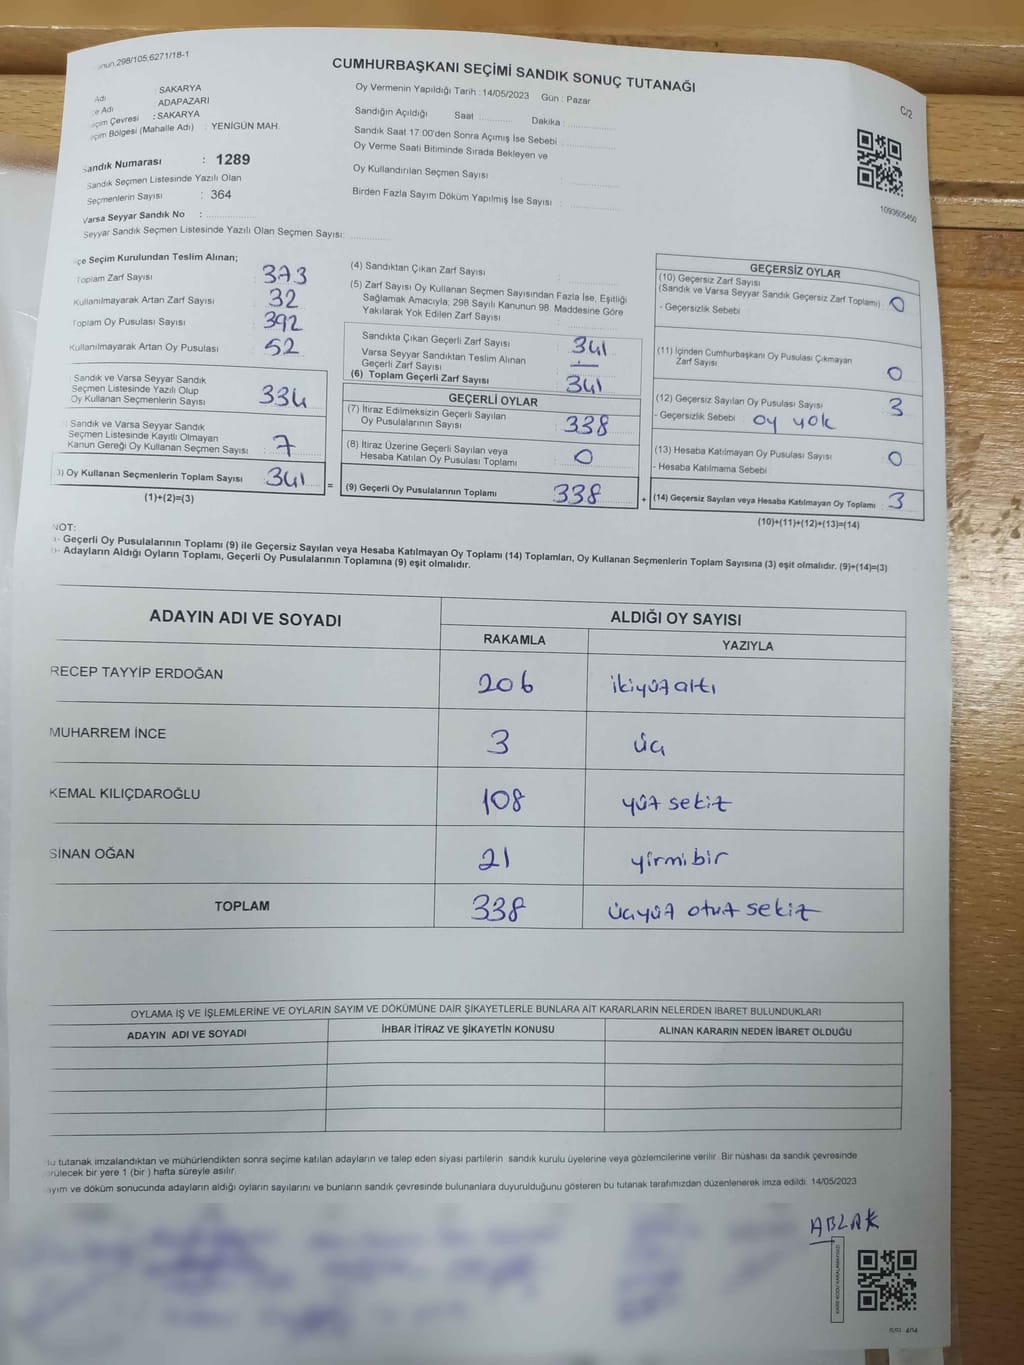 298/105,6271/18-1
CUMHURBAŞKANI SEÇİMİ SANDIK SONUÇ TUTANAĞI
C/2
Oy Vermenin Yapıldığı Tarih : 14/05/2023 Gün : Pazar
Adı : SAKARYA
Adı ADAPAZARI
Çevresi : SAKARYA
Bölgesi (Mahalle Adı) : YENİGÜN MAH.
Sandık Numarası : 1289
Sandık Seçmen Listesinde Yazılı Olan
Seçmenlerin Sayısı : 364
Varsa Seyyar Sandık No :
Seyyar Sandık Seçmen Listesinde Yazılı Olan Seçmen Sayısı:
Sandığın Açıldığı Saat Dakika :
Sandık Saat 17:00'den Sonra Açımış İse Sebebi :
Oy Verme Saati Bitiminde Sırada Bekleyen ve
Oy Kullandırılan Seçmen Sayısı :
Birden Fazla Sayım Döküm Yapılmış İse Sayısı :
1093605450
Seçim Kurulundan Teslim Alınan;
Toplam Zarf Sayısı 373
Kullanılmayarak Artan Zarf Sayısı 32
Toplam Oy Pusulası Sayısı 392
Kullanılmayarak Artan Oy Pusulası 52
Sandık ve Varsa Seyyar Sandık
Seçmen Listesinde Yazılı Olup
Oy Kullanan Seçmenlerin Sayısı 334
Sandık ve Varsa Seyyar Sandık
Seçmen Listesinde Kayıtlı Olmayan
Kanun Gereği Oy Kullanan Seçmen Sayısı 7
) Oy Kullanan Seçmenlerin Toplam Sayısı : 341 =
(1)+(2)=(3)
(4) Sandıktan Çıkan Zarf Sayısı :
(5) Zarf Sayısı Oy Kullanan Seçmen Sayısından Fazla İse, Eşitliği
Sağlamak Amacıyla; 298 Sayılı Kanunun 98. Maddesine Göre
Yakılarak Yok Edilen Zarf Sayısı :
Sandıkta Çıkan Geçerli Zarf Sayısı 341
Varsa Seyyar Sandıktan Teslim Alınan
Geçerli Zarf Sayısı —
(6) Toplam Geçerli Zarf Sayısı 341
GEÇERLİ OYLAR
(7) İtiraz Edilmeksizin Geçerli Sayılan
Oy Pusulalarının Sayısı 338
(8) İtiraz Üzerine Geçerli Sayılan veya
Hesaba Katılan Oy Pusulası Toplamı : 0
(9) Geçerli Oy Pusulalarının Toplamı 338 +
GEÇERSİZ OYLAR
(10) Geçersiz Zarf Sayısı
(Sandık ve Varsa Seyyar Sandık Geçersiz Zarf Toplamı) 0
- Geçersizlik Sebebi
(11) İçinden Cumhurbaşkanı Oy Pusulası Çıkmayan
Zarf Sayısı 0
(12) Geçersiz Sayılan Oy Pusulası Sayısı 3
- Geçersizlik Sebebi : oy yok
(13) Hesaba Katılmayan Oy Pusulası Sayısı : 0
- Hesaba Katılmama Sebebi
(14) Geçersiz Sayılan veya Hesaba Katılmayan Oy Toplamı : 3
(10)+(11)+(12)+(13)=(14)
NOT:
- Geçerli Oy Pusulalarının Toplamı (9) ile Geçersiz Sayılan veya Hesaba Katılmayan Oy Toplamı (14) Toplamları, Oy Kullanan Seçmenlerin Toplam Sayısına (3) eşit olmalıdır. (9)+(14)=(3)
- Adayların Aldığı Oyların Toplamı, Geçerli Oy Pusulalarının Toplamına (9) eşit olmalıdır.
ADAYIN ADI VE SOYADI ALDIĞI OY SAYISI
RAKAMLA YAZIYLA
RECEP TAYYİP ERDOĞAN 206 ikiyüz altı
MUHARREM İNCE 3 üç
KEMAL KILIÇDAROĞLU 108 yüz sekiz
SİNAN OĞAN 21 yirmi bir
TOPLAM 338 üçyüz otuz sekiz
OYLAMA İŞ VE İŞLEMLERİNE VE OYLARIN SAYIM VE DÖKÜMÜNE DAİR ŞİKAYETLERLE BUNLARA AİT KARARLARIN NELERDEN İBARET BULUNDUKLARI
ADAYIN ADI VE SOYADI İHBAR İTİRAZ VE ŞİKAYETİN KONUSU ALINAN KARARIN NEDEN İBARET OLDUĞU
tutanak imzalandıktan ve mühürlendikten sonra seçime katılan adayların ve talep eden siyasi partilerin sandık kurulu üyelerine veya gözlemcilerine verilir. Bir nüshası da sandık çevresinde
bir yere 1 (bir ) hafta süreyle asılır.
ve döküm sonucunda adayların aldığı oyların sayılarını ve bunların sandık çevresinde bulunanlara duyurulduğunu gösteren bu tutanak tarafımızdan düzenlenerek imza edildi. 14/05/2023
ABLAK
KARE KODU KARALAMAYINIZ!